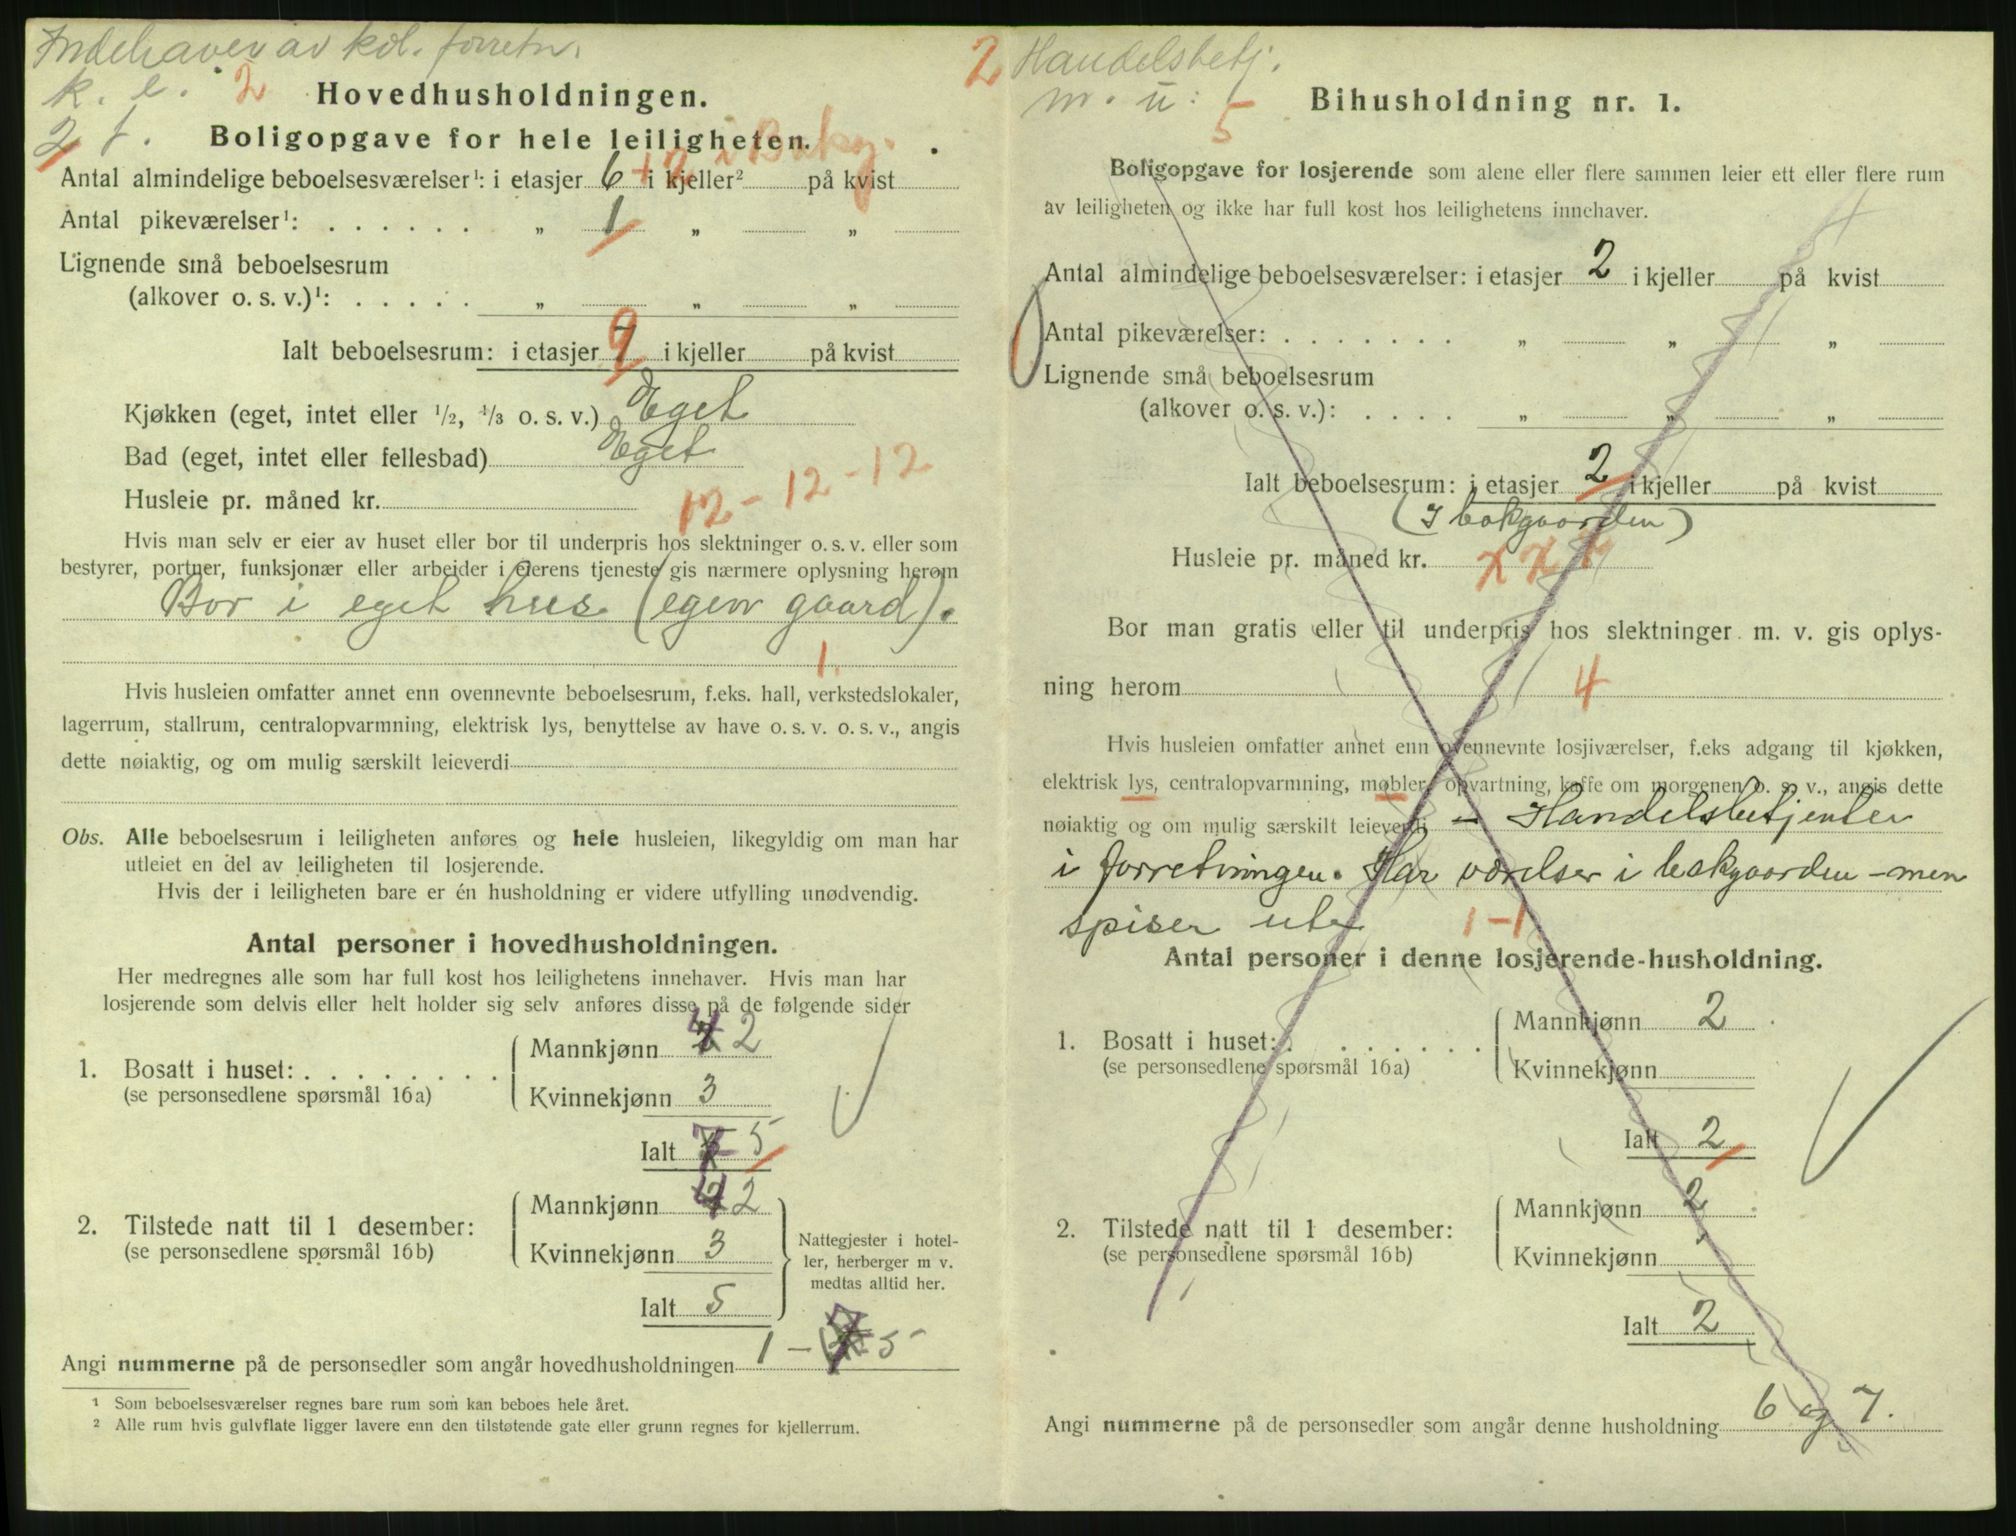 Indehaver av kol. forretn.
k. e. 2
2 f.
Hovedhusholdningen.
Boligopgave for hele leiligheten.
Antal almindelige beboelsesværelser¹: i etasjer 6 + 2 i Bakg. i kjeller² på kvist
Antal pikeværelser¹: . . . . . . „ 1 „ „
Lignende små beboelsesrum
(alkover o. s. v.)¹: . . . . . „ „ „
Ialt beboelsesrum: i etasjer 7 9 i kjeller på kvist
Kjøkken (eget, intet eller 1/2, 1/3 o. s. v.) Eget
Bad (eget, intet eller fellesbad) Eget
Husleie pr. måned kr. 12 - 12 - 12
Hvis man selv er eier av huset eller bor til underpris hos slektninger o. s. v. eller som
bestyrer, portner, funksjonær eller arbeider i eierens tjeneste gis nærmere oplysning herom
Bor i eget hus (egen gaard).
1.
Hvis husleien omfatter annet enn ovennevnte beboelsesrum, f.eks. hall, verkstedslokaler,
lagerrum, stallrum, centralopvarmning, elektrisk lys, benyttelse av have o. s. v. o. s. v., angis
dette nøiaktig, og om mulig særskilt leieverdi
Obs. Alle beboelsesrum i leiligheten anføres og hele husleien, likegyldig om man har
utleiet en del av leiligheten til losjerende.
Hvis der i leiligheten bare er én husholdning er videre utfylling unødvendig.
Antal personer i hovedhusholdningen.
Her medregnes alle som har full kost hos leilighetens innehaver. Hvis man har
losjerende som delvis eller helt holder sig selv anføres disse på de følgende sider
1. Bosatt i huset: . . . . . . . .
(se personsedlene spørsmål 16a)
Mannkjønn 4 2
Kvinnekjønn 3
Ialt 7 5
2. Tilstede natt til 1 desember:
(se personsedlene spørsmål 16b)
Mannkjønn 4 2
Kvinnekjønn 3
Ialt 5
Nattegjester i hotel-
ler, herberger m v.
medtas alltid her.
Angi nummerne på de personsedler som angår hovedhusholdningen 1 - 7 5
¹ Som beboelsesværelser regnes bare rum som kan beboes hele året.
² Alle rum hvis gulvflate ligger lavere enn den tilstøtende gate eller grunn regnes for kjellerrum.
2 Handelsbetj.
m. u: 5
Bihusholdning nr. 1.
Boligopgave for losjerende som alene eller flere sammen leier ett eller flere rum
av leiligheten og ikke har full kost hos leilighetens innehaver.
Antal almindelige beboelsesværelser: i etasjer 2 i kjeller på kvist
Antal pikeværelser: . . . . . . . „ „ „
Lignende små beboelsesrum
(alkover o. s. v.): . . . . „ „ „
Ialt beboelsesrum: i etasjer 2 i kjeller på kvist
(I bakgaarden)
Husleie pr. måned kr. x x x
Bor man gratis eller til underpris hos slektninger m. v. gis oplys-
ning herom 4
Hvis husleien omfatter annet enn ovennevnte losjiværelser, f.eks adgang til kjøkken,
elektrisk lys, centralopvarmning, møbler, opvartning, kaffe om morgenen o. s. v., angis dette
nøiaktig og om mulig særskilt leieverdi - Handelsbetjenter
i forretningen. Har værelser i bakgaarden - men
spiser ute 1 - 1
Antal personer i denne losjerende-husholdning.
1. Bosatt i huset: . . . . . . . .
(se personsedlene spørsmål 16a)
Mannkjønn 2
Kvinnekjønn
Ialt 2
2. Tilstede natt til 1 desember:
(se personsedlene spørsmål 16b)
Mannkjønn 2
Kvinnekjønn
Ialt 2
Angi nummerne på de personsedler som angår denne husholdning 6 og 7.